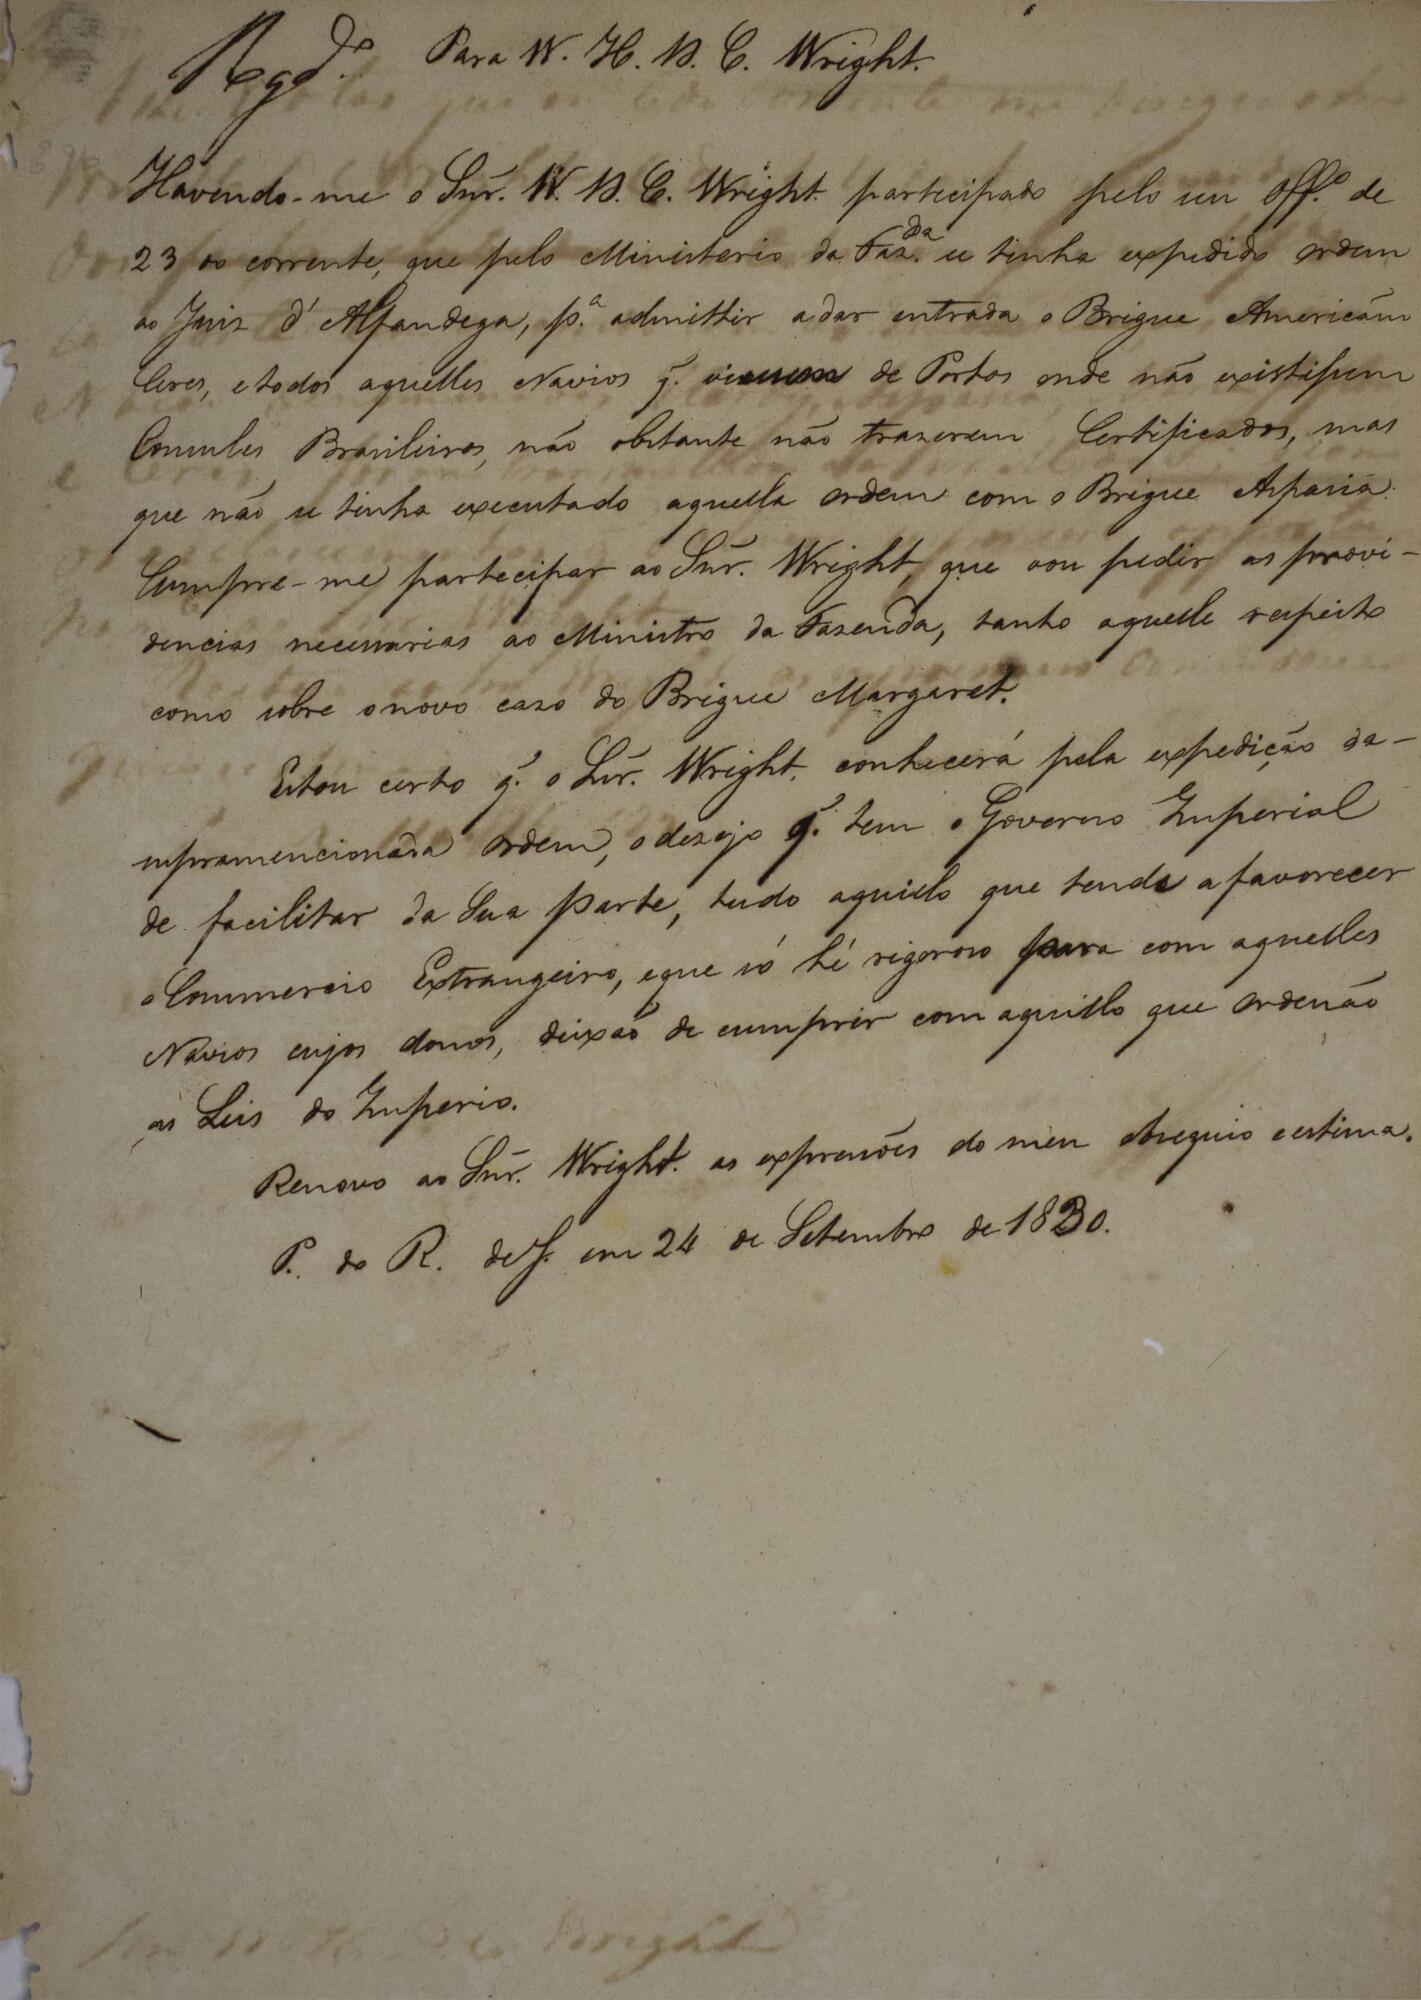 Regd.º Para W. H. D. C. Wright.
Havendo-me o Snr. W. D. C. Wright. participado pelo seu Off.º de
23 do corrente, que pelo Ministerio da Faz.da se tinha expedido ordem
ao Juiz d'Alfandega, p.a admittir a dar entrada o Brigue Americão
Ceres, e todos aquelles Navios q. viessem de Portos onde não existissem
Consules Brasileiros, não obstante não trazerem Certificados, mas
que não se tinha executado aquella ordem com o Brigue
Cumpre-me partecipar ao Snr. Wright, que vou pedir as provi-
dencias necessarias ao Ministro da Fazenda, tanto aquelle respeito
como sobre o novo caso do Brigue Margaret.
Estou certo q. o Snr. Wright. conhecerá pela expedição da-
supramencionada ordem, o dezejo q. tem o Governo Imperial
de facilitar da Sua parte, tudo aquillo que tende a favorecer
o Commercio Extrangeiro, e que só hé rigoroso para com aquelles
Navios cujos donos, deixão de cumprir com aquillo que ordenão
as Leis do Imperio.
Renovo ao Snr. Wright. as expressões do meu obsequio e estima.
P. do R. de J. em 24 de Setembro de 1830.